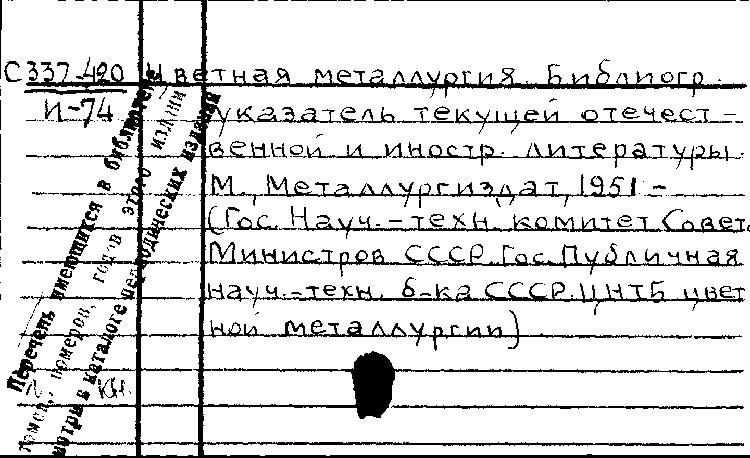 С337-490 Цветная металлургия. Библиогр.
И-74 указатель текущей отечест-
венной и иностр. литературы.
М., Металлургиздат, 1951 -
(Гос. Науч.-техн. комитет Совет.
Министров СССР. Гос. Публичная
науч.-техн. б-ка СССР. ЦНТБ цвет
ной металлургии)
Перечень имеющихся в библиотеке
томов, номеров, годов этого издания
смотри в каталоге периодических изданий